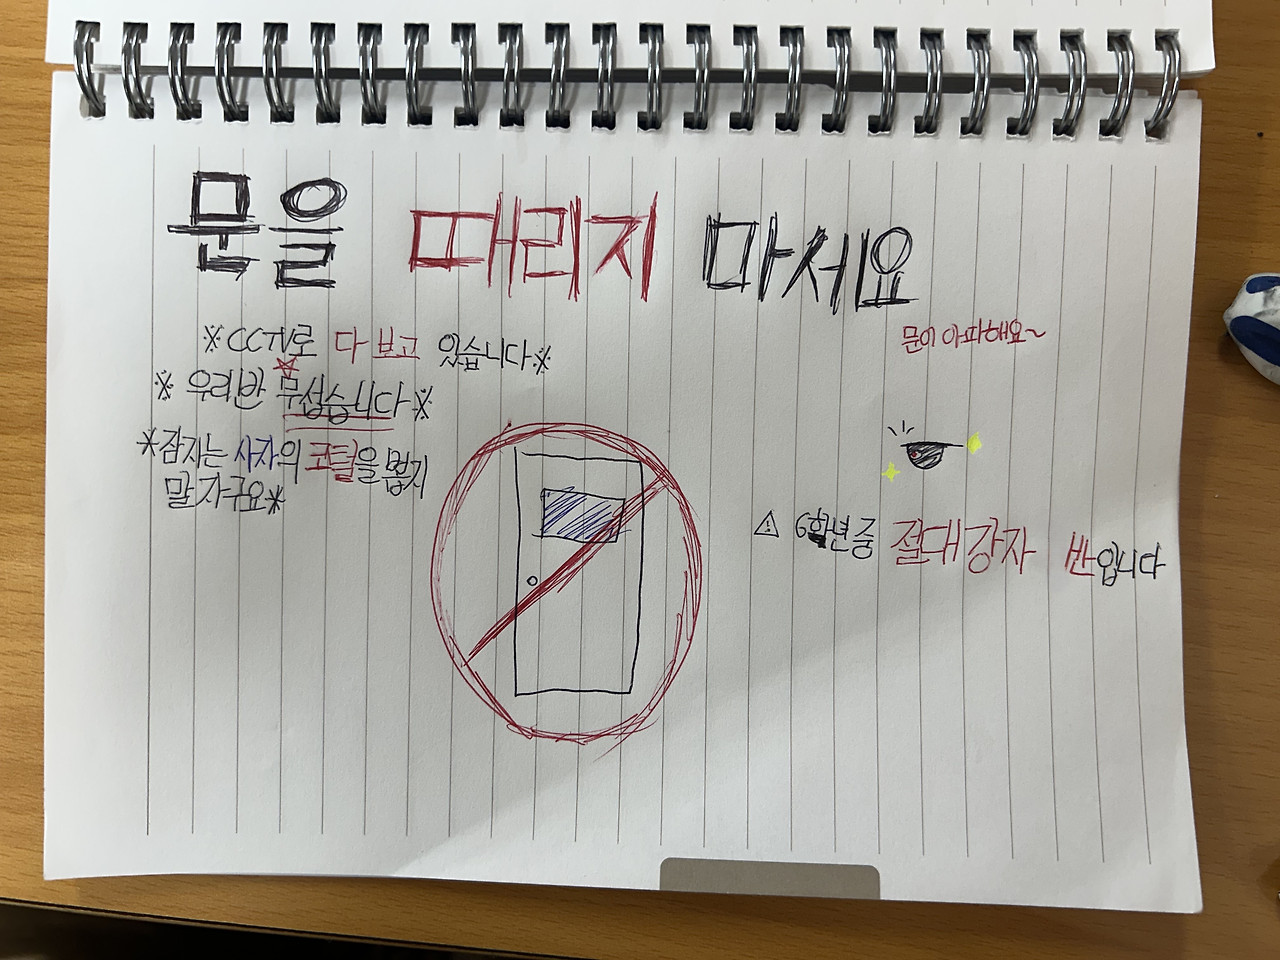 문을 때리지 마세요
※CCTV로 다 보고 있습니다※
문이 아파해요~
※ 우리반 무섭습니다※
*잠자는 사자의 코털을 뽑지
말자구요*
⚠ 6학년 중 절대강자 반입니다